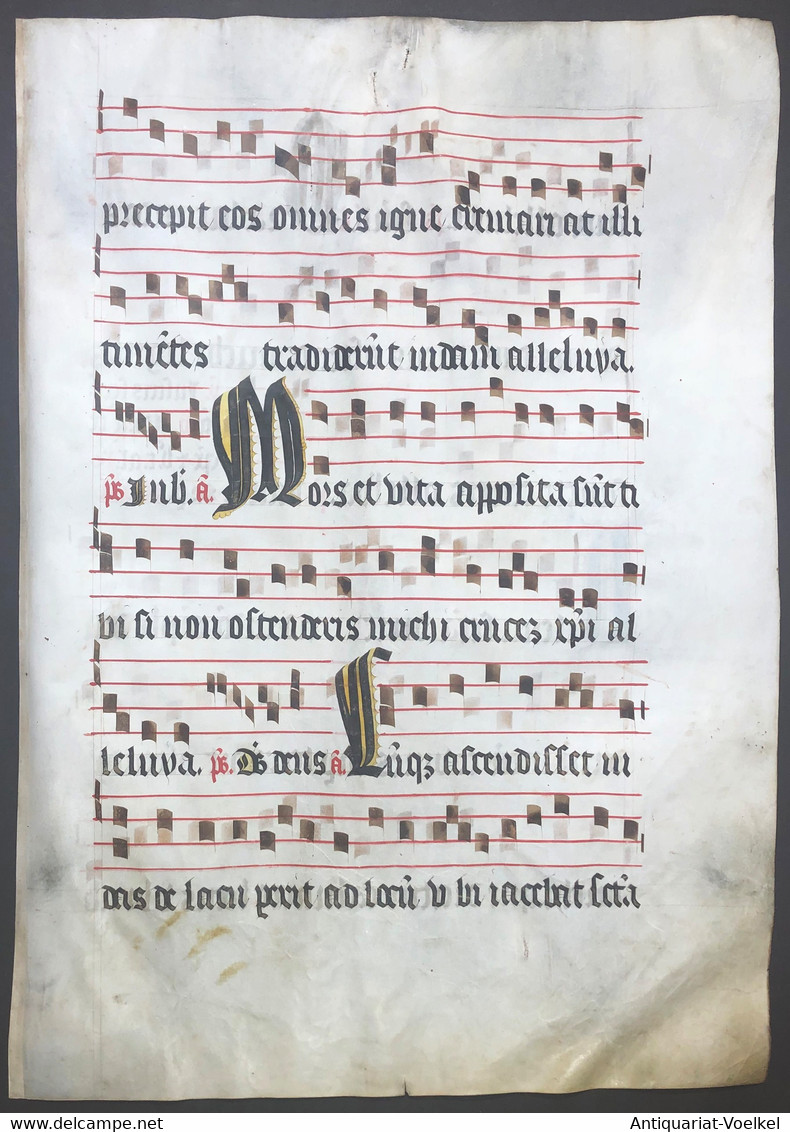 precepit eos omnes igne cremari at illi
timẽtes tradiderũt iudam alleluya.
p̃s Jub̃. ã. Mors et vita apposita sũt ti
bi si non ostenderis michi crucez xp̃i al
leluya. p̃s. D̃s deus ã. Cũqꝫ ascendisset iu
das de lacu perit ad locũ vbi iacebat sct̃a
Antiquariat-Voelkel